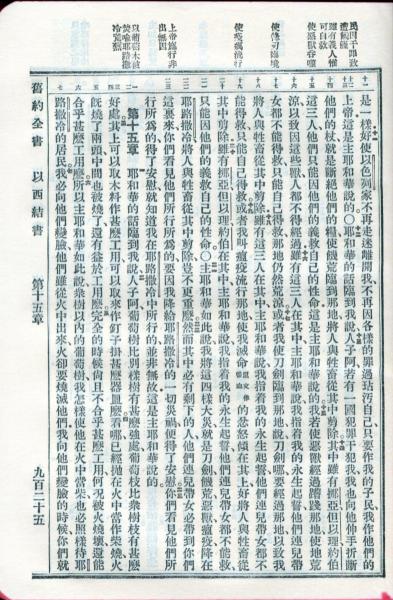 民因干罪致
遭饑饉
雖有義人惟
可自救
使惡獸吞噬
使疫癘流行
出無因
以葡萄木被
焚喻耶路撒
冷荒廢
是一樣好使以色列家不再走迷離開我不再因各樣的罪過玷污自己只要作我的子民我作他們的
上帝這是主耶和華說的○耶和華的話臨到我說人子阿若有一國犯罪干犯我我也向他伸手折斷
他們的杖就是斷絕他們的糧使饑荒臨到那地將人與牲畜從其中剪除其中雖有挪亞但以理約伯
這三人他們只能因他們的義救自己的性命這是主耶和華說的我若使惡獸經過蹧踐那地使地荒
涼以致因這些獸人都不得經過雖有這三人在其中主耶和華說我指着我的永生起誓他們連兒帶
女都不能得救只能自己得救那地仍然荒涼或者我使刀劍臨到那地說刀劍哪要經過那地以致我
將人與牲畜從其中剪除雖有這三人在其中主耶和華說我指着我的永生起誓他們連兒帶女都不
能得救只能自己得救或者我叫瘟疫流行那地使我滅命原文作帶血的忿怒傾在其上好將人與牲畜從
其中剪除雖有挪亞但以理約伯在其中主耶和華說我指着我的永生起誓他們連兒帶女都不能救
只能因他們的義救自己的性命○主耶和華如此說我將這四樣大災就是刀劍饑荒惡獸瘟疫降在
耶路撒冷將人與牲畜從其中剪除豈不更重麼然而其中必有剩下的人他們連兒帶女必帶到你們
這裏來你們看見他們所行所為的要因我降給耶路撒冷的一切災禍便得了安慰你們看見他們所
行所為的得了安慰就知道我在耶路撒冷中所行的並非無故這是主耶和華說的
第十五章 耶和華的話臨到我說人子阿葡萄樹比別樣樹有甚麼強處葡萄枝比衆樹枝有甚麼
好處其上可以取木料作甚麼工用可以取來作釘子掛甚麼器皿麼看哪已經抛在火中當作柴燒火
既燒了兩頭中間也被燒了還有益於工用麼完全的時候尚且不合乎甚麼工用何況被火燒壞還能
合乎甚麼工用麼所以主耶和華如此說衆樹以內的葡萄樹我怎樣使他在火中當柴也必照樣待耶
路撒冷的居民我必向他們變臉他們雖從火中出來火卻要燒滅他們我向他們變臉的時候你們就
舊約全書 以西結書 第十五章 九百二十五